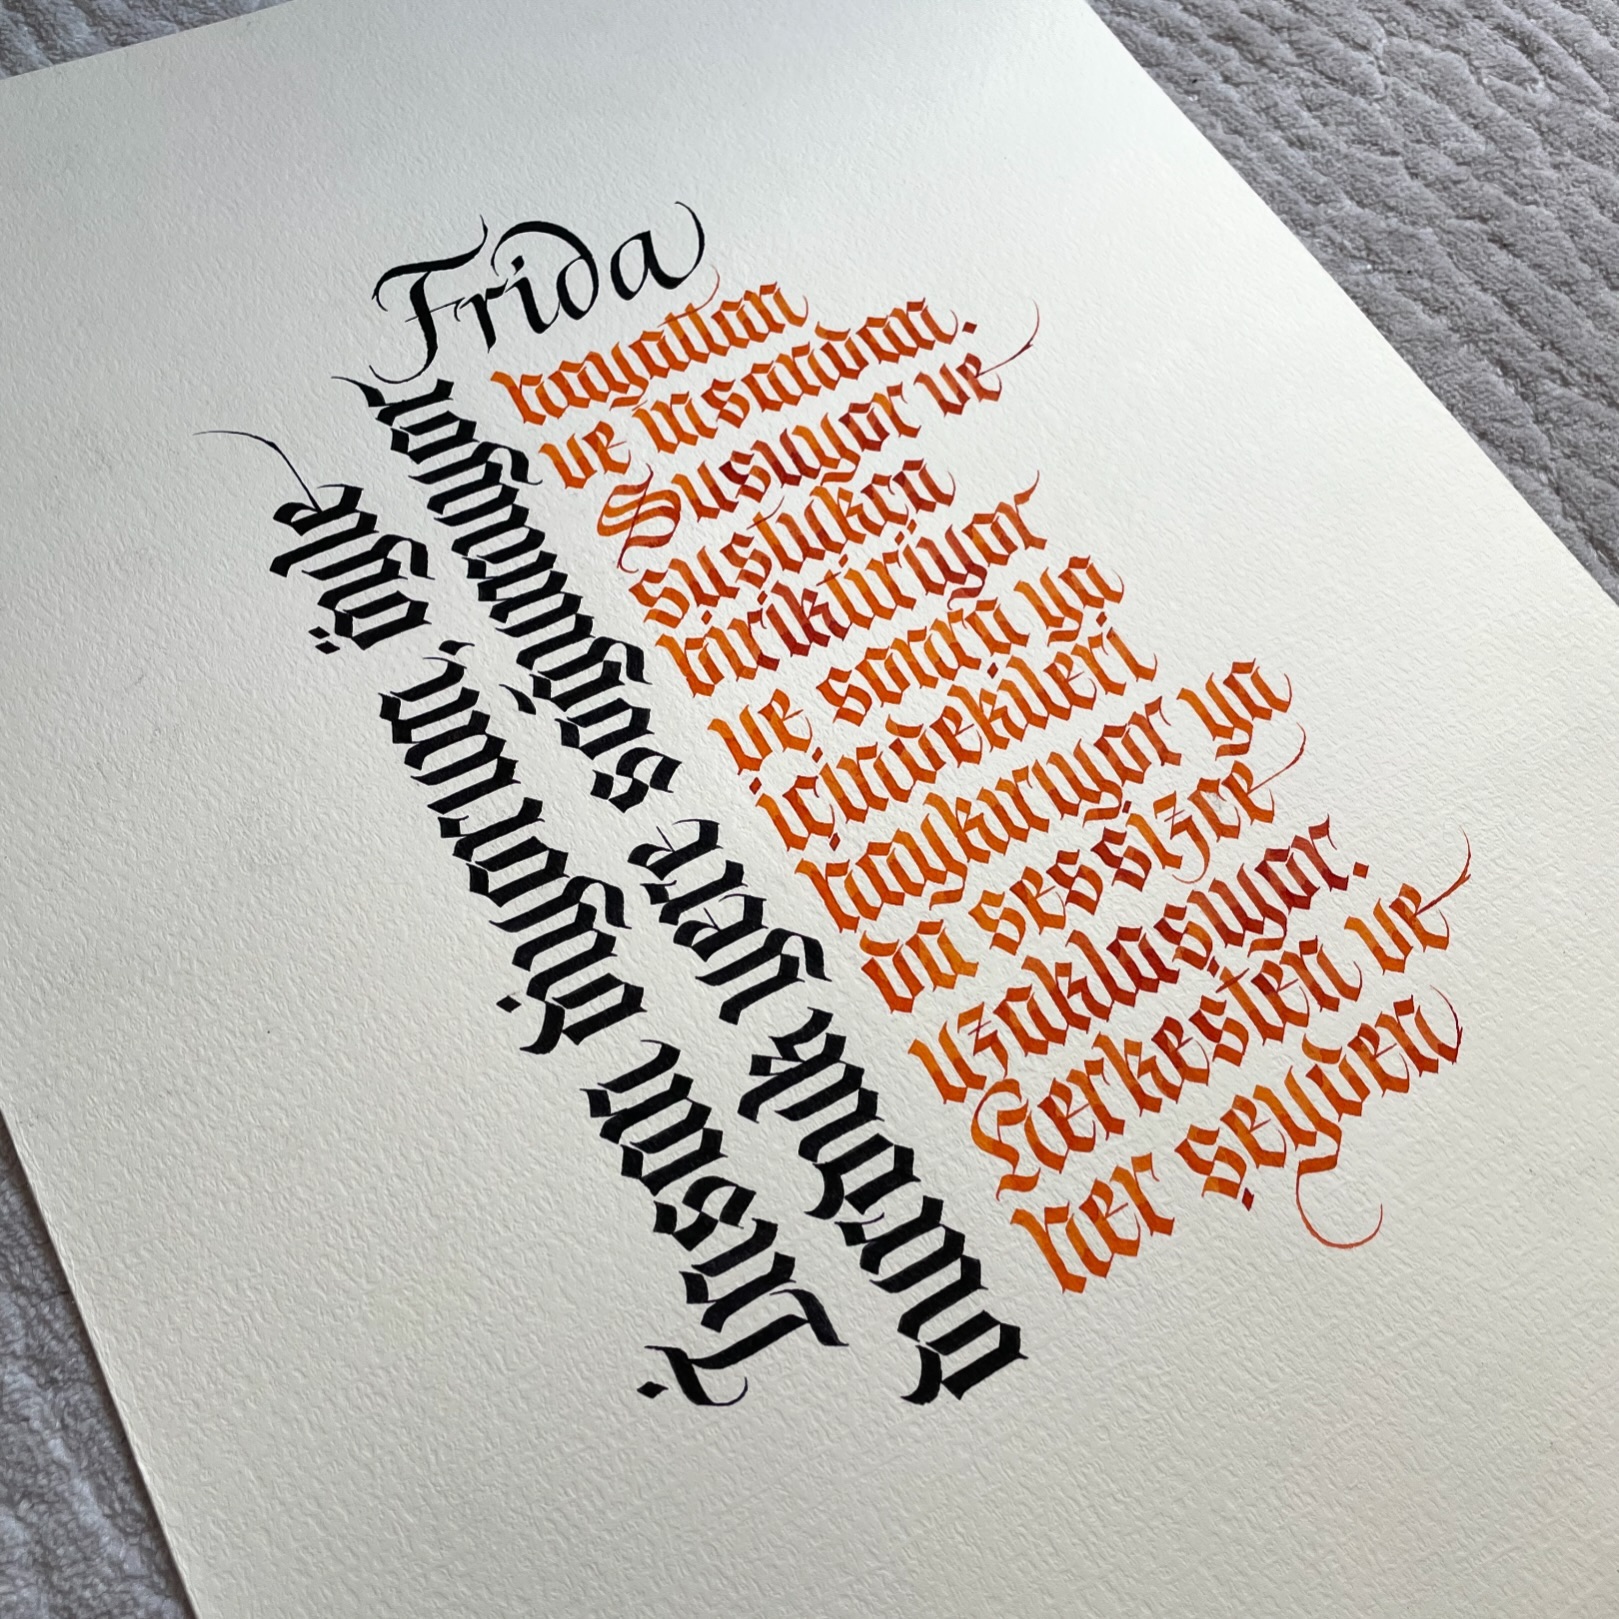 İnsan diyorum, öyle
durduk yere soğumuyor
Frida
hayattan
ve insandan.
Susuyor ve
sustukça
biriktiriyor
ve sonra ya
içindekileri
haykırıyor ya
da sessizce
uzaklaşıyor.
Herkesten ve
her şeyden